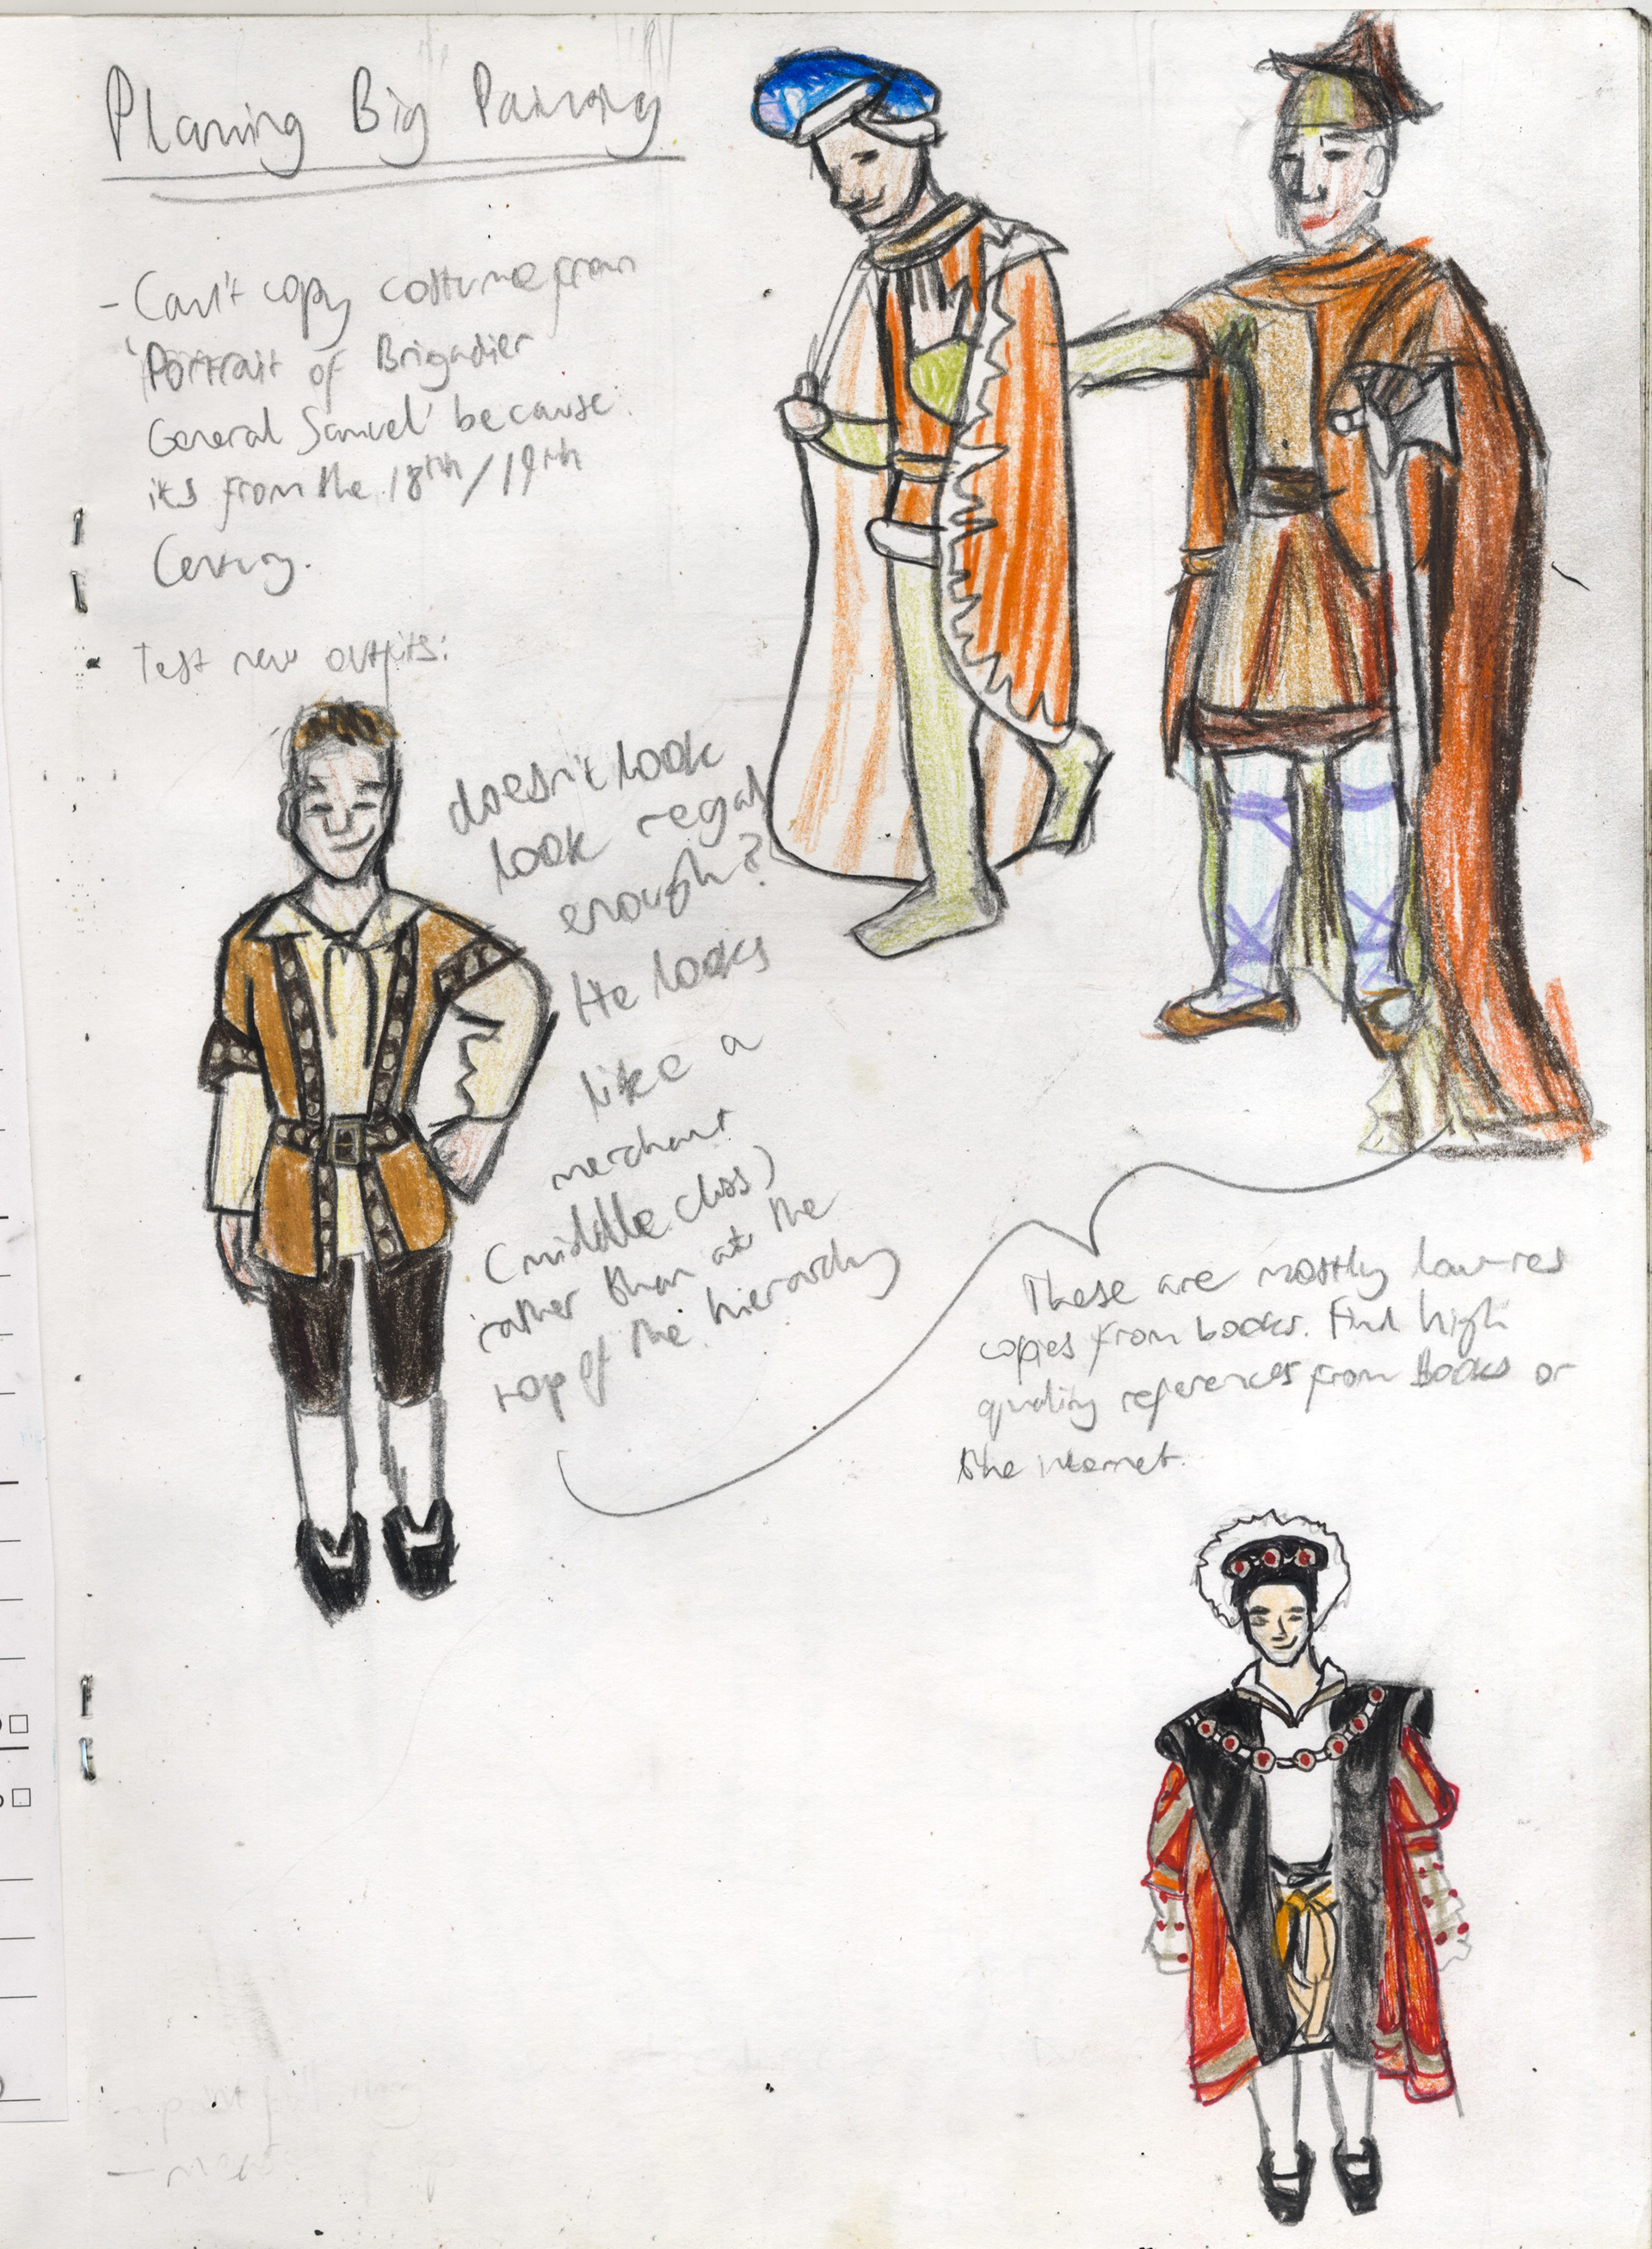 Planing Big Painting
- Can't copy costume from
'Portrait of Brigadier
General Samuel' because
its from the 18th/19th
Century.
Test new outfits:
doesn't look
look regal
enough?
He looks
like a
merchant
(middle class)
rather than at the
top of the hierarchy
These are mostly low-res
copies from books. Find high
quality references from Books or
the internet.